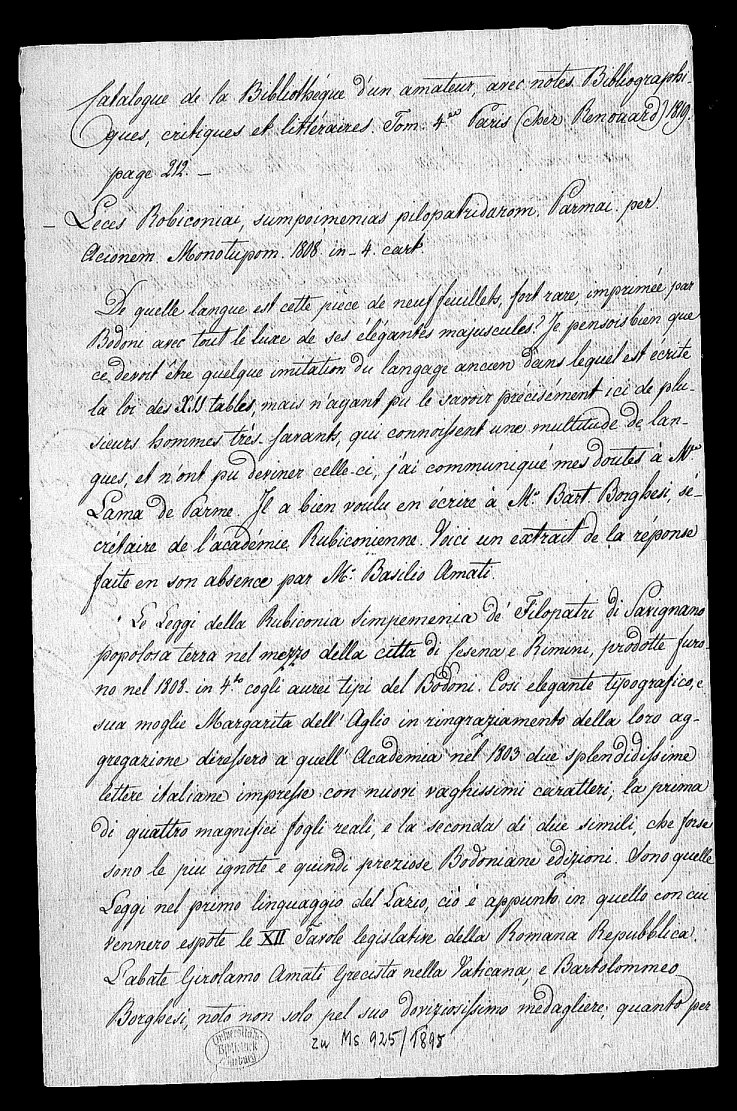 Catalogue de la Bibliothéque d'un amateur, avec notes Bibliographi-
ques, critiques et littéraires. Tom: 4.to Paris (chez Renouard) 1819.
page 212. —
— Leces Robiconiai, sumpoimenias pilopatridarom. Parmai. per
Acionem. Monotupom. 1808. in-4. cart.
De quelle langue est cette piéce de neuf feuillets, fort rare, imprimée par
Bodoni avec tout le luxe de ses élégantes majuscules? Je pensois bien que
ce devoit être quelque imitation du langage ancien dans lequel est écrite
la loi des XII tables, mais n'ayant pu le savoir précisément ici de plu-
sieurs hommes très-savants, qui connoissent une multitude de lan-
gues, et n'ont pu deviner celle-ci, j'ai communiqué mes doutes à Mr.
Lama de Parme. Il a bien voulu en écrire à Mr. Bart. Borghesi, sé-
crétaire de l'académie Rubiconienne. Voici un extrait de la réponse
faite en son absence par Mr. Basilio Amati.
Le Leggi della Rubiconia Simpemenia de' Filopatri di Savignano
popolosa terra nel mezzo della città di Cesena e Rimini, prodotte furo-
no nel 1808. in 4.to cogli aurei tipi del Bodoni. Così elegante tipografico, e
sua moglie Margarita dell'Aglio in ringraziamento della loro ag-
gregazione diressero a quell'Academia nel 1803 due splendidissime
lettere italiane impresse con nuovi vaghissimi caratteri, la prima
di quattro magnifici fogli reali, e la seconda di due simili, che forse
sono le piu ignote e quindi preziose Bodoniane edizioni. Sono quelle
Leggi nel primo linguaggio del Lazio, ciò è appunto in quello con cui
vennero espote le XII Tavole legislative della Romana Repubblica.
L'abate Girolamo Amati Grecista nella Vaticana, e Bartolommeo
Borghesi, noto non solo pel suo doviziosissimo medagliere, quanto per
zu Ms 925/1895